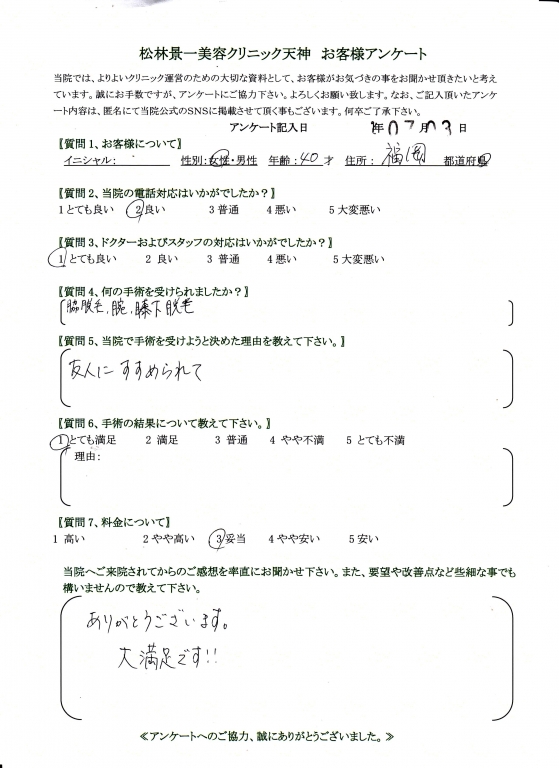 松林景一美容クリニック天神　お客様アンケート
当院では、よりよいクリニック運営のための大切な資料として、お客様がお気づきの事をお聞かせ頂きたいと考え
ています。誠にお手数ですが、アンケートにご協力下さい。よろしくお願い致します。なお、ご記入頂いたアンケ
ート内容は、匿名にて当院公式のSNSに掲載させて頂く事もございます。何卒ご了承下さい。
アンケート記入日　年 07月 03日
【質問1、お客様について】
イニシャル：　性別：女性・男性　年齢：40才　住所：福岡　都道府県
【質問2、当院の電話対応はいかがでしたか？】
1とても良い　2良い　3普通　4悪い　5大変悪い
【質問3、ドクターおよびスタッフの対応はいかがでしたか？】
1とても良い　2良い　3普通　4悪い　5大変悪い
【質問4、何の手術を受けられましたか？】
脇脱毛、腕、膝下脱毛
【質問5、当院で手術を受けようと決めた理由を教えて下さい。】
友人にすすめられて
【質問6、手術の結果について教えて下さい。】
1とても満足　2満足　3普通　4やや不満　5とても不満
理由：
【質問7、料金について】
1高い　2やや高い　3妥当　4やや安い　5安い
当院へご来院されてからのご感想を率直にお聞かせ下さい。また、要望や改善点など些細な事でも
構いませんので教えて下さい。
ありがとうございます。
大満足です!!
≪アンケートへのご協力、誠にありがとうございました。≫